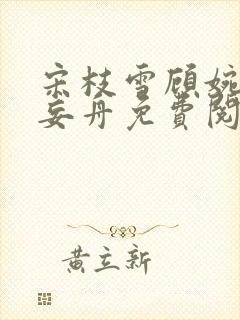 宋枝雪顾婉
妄丹免費閱
黄立新